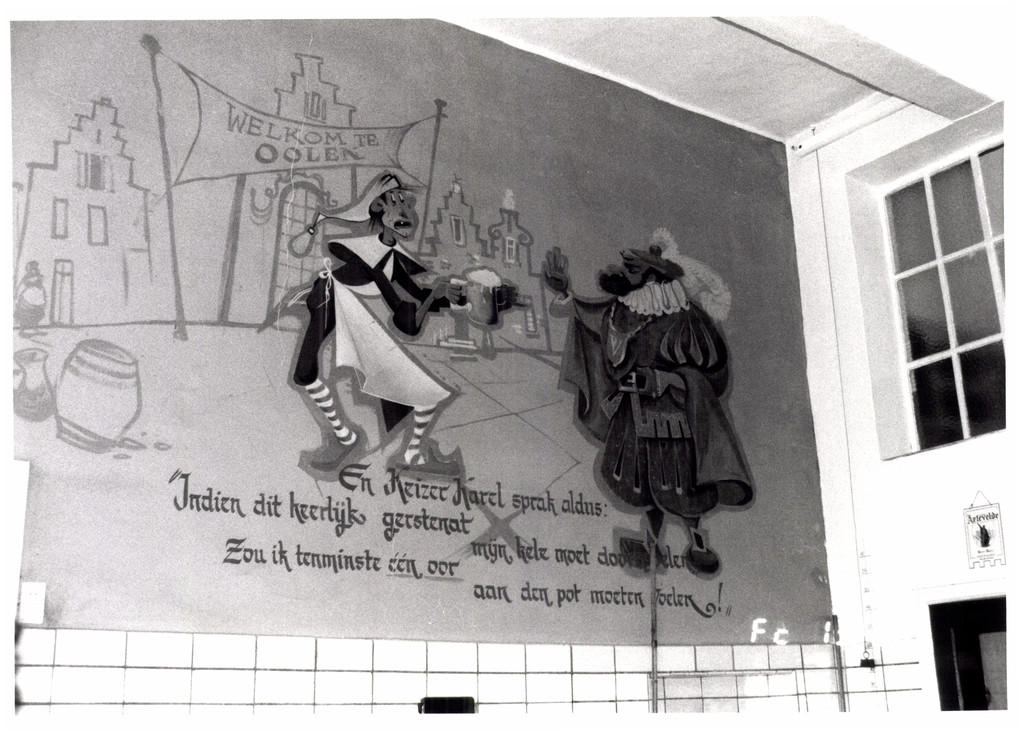 WELKOM TE
OOLEN
En Keizer Karel sprak aldus:
"Indien dit heerlijk gerstenat
mijn kele moet doorspoelen
Zou ik tenminste één oor
aan den pot moeten voelen !"
Artevelde
Fc 1